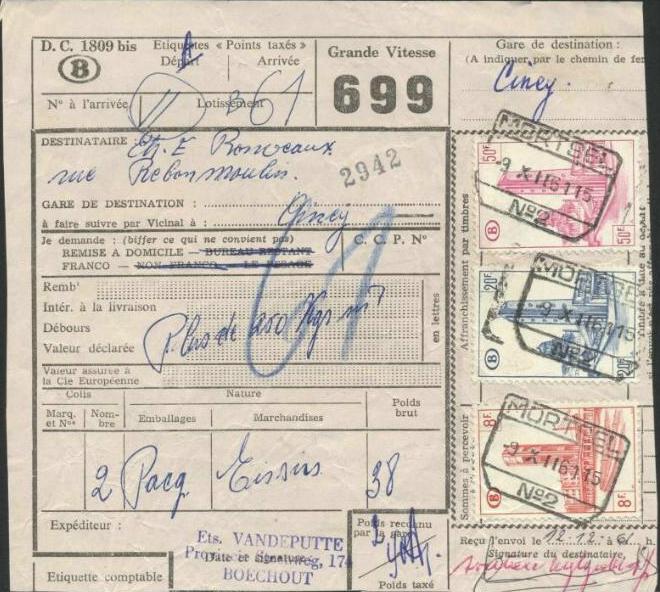 D. C. 1809 bis
B
Etiquettes « Points taxés »
Départ Arrivée
Grande Vitesse
699
Gare de destination :
(A indiquer par le chemin de fer
Ciney.
N° à l'arrivée
11
Lotissement
B 61
DESTINATAIRE :
rue
2942
GARE DE DESTINATION :
à faire suivre par Vicinal à :
Ciney
Je demande : (biffer ce qui ne convient pas)
REMISE A DOMICILE — BUREAU RESTANT
FRANCO — NON FRANCO — LE PESAGE
C. C. P. N°
61
Remb'
Intér. à la livraison
Débours
Valeur déclarée
Plus de 250 Kgs m³
en lettres
Valeur assurée à
la Cie Européenne
Colis
Nature
Poids
brut
Marq.
et Nos
Nom-
bre
Emballages
Marchandises
2 Pacq Tissus 38
Expéditeur :
Ets. VANDEPUTTE
Provincie Steenweg, 174
BOECHOUT
Date et Signature
Poids reconnu
par la gare
Poids taxé
Etiquette comptable
Affranchissement par timbres
Sommes à percevoir
50F
B
50F
MORTSEL
-9 XII 61 15
N°2
20F
B
20F
MORTSEL
-9 XII 61 15
N°2
8F
B
8F
MORTSEL
-9 XII 61 15
N°2
Reçu l'envoi le 12.12.61 à h.
Signature du destinataire,